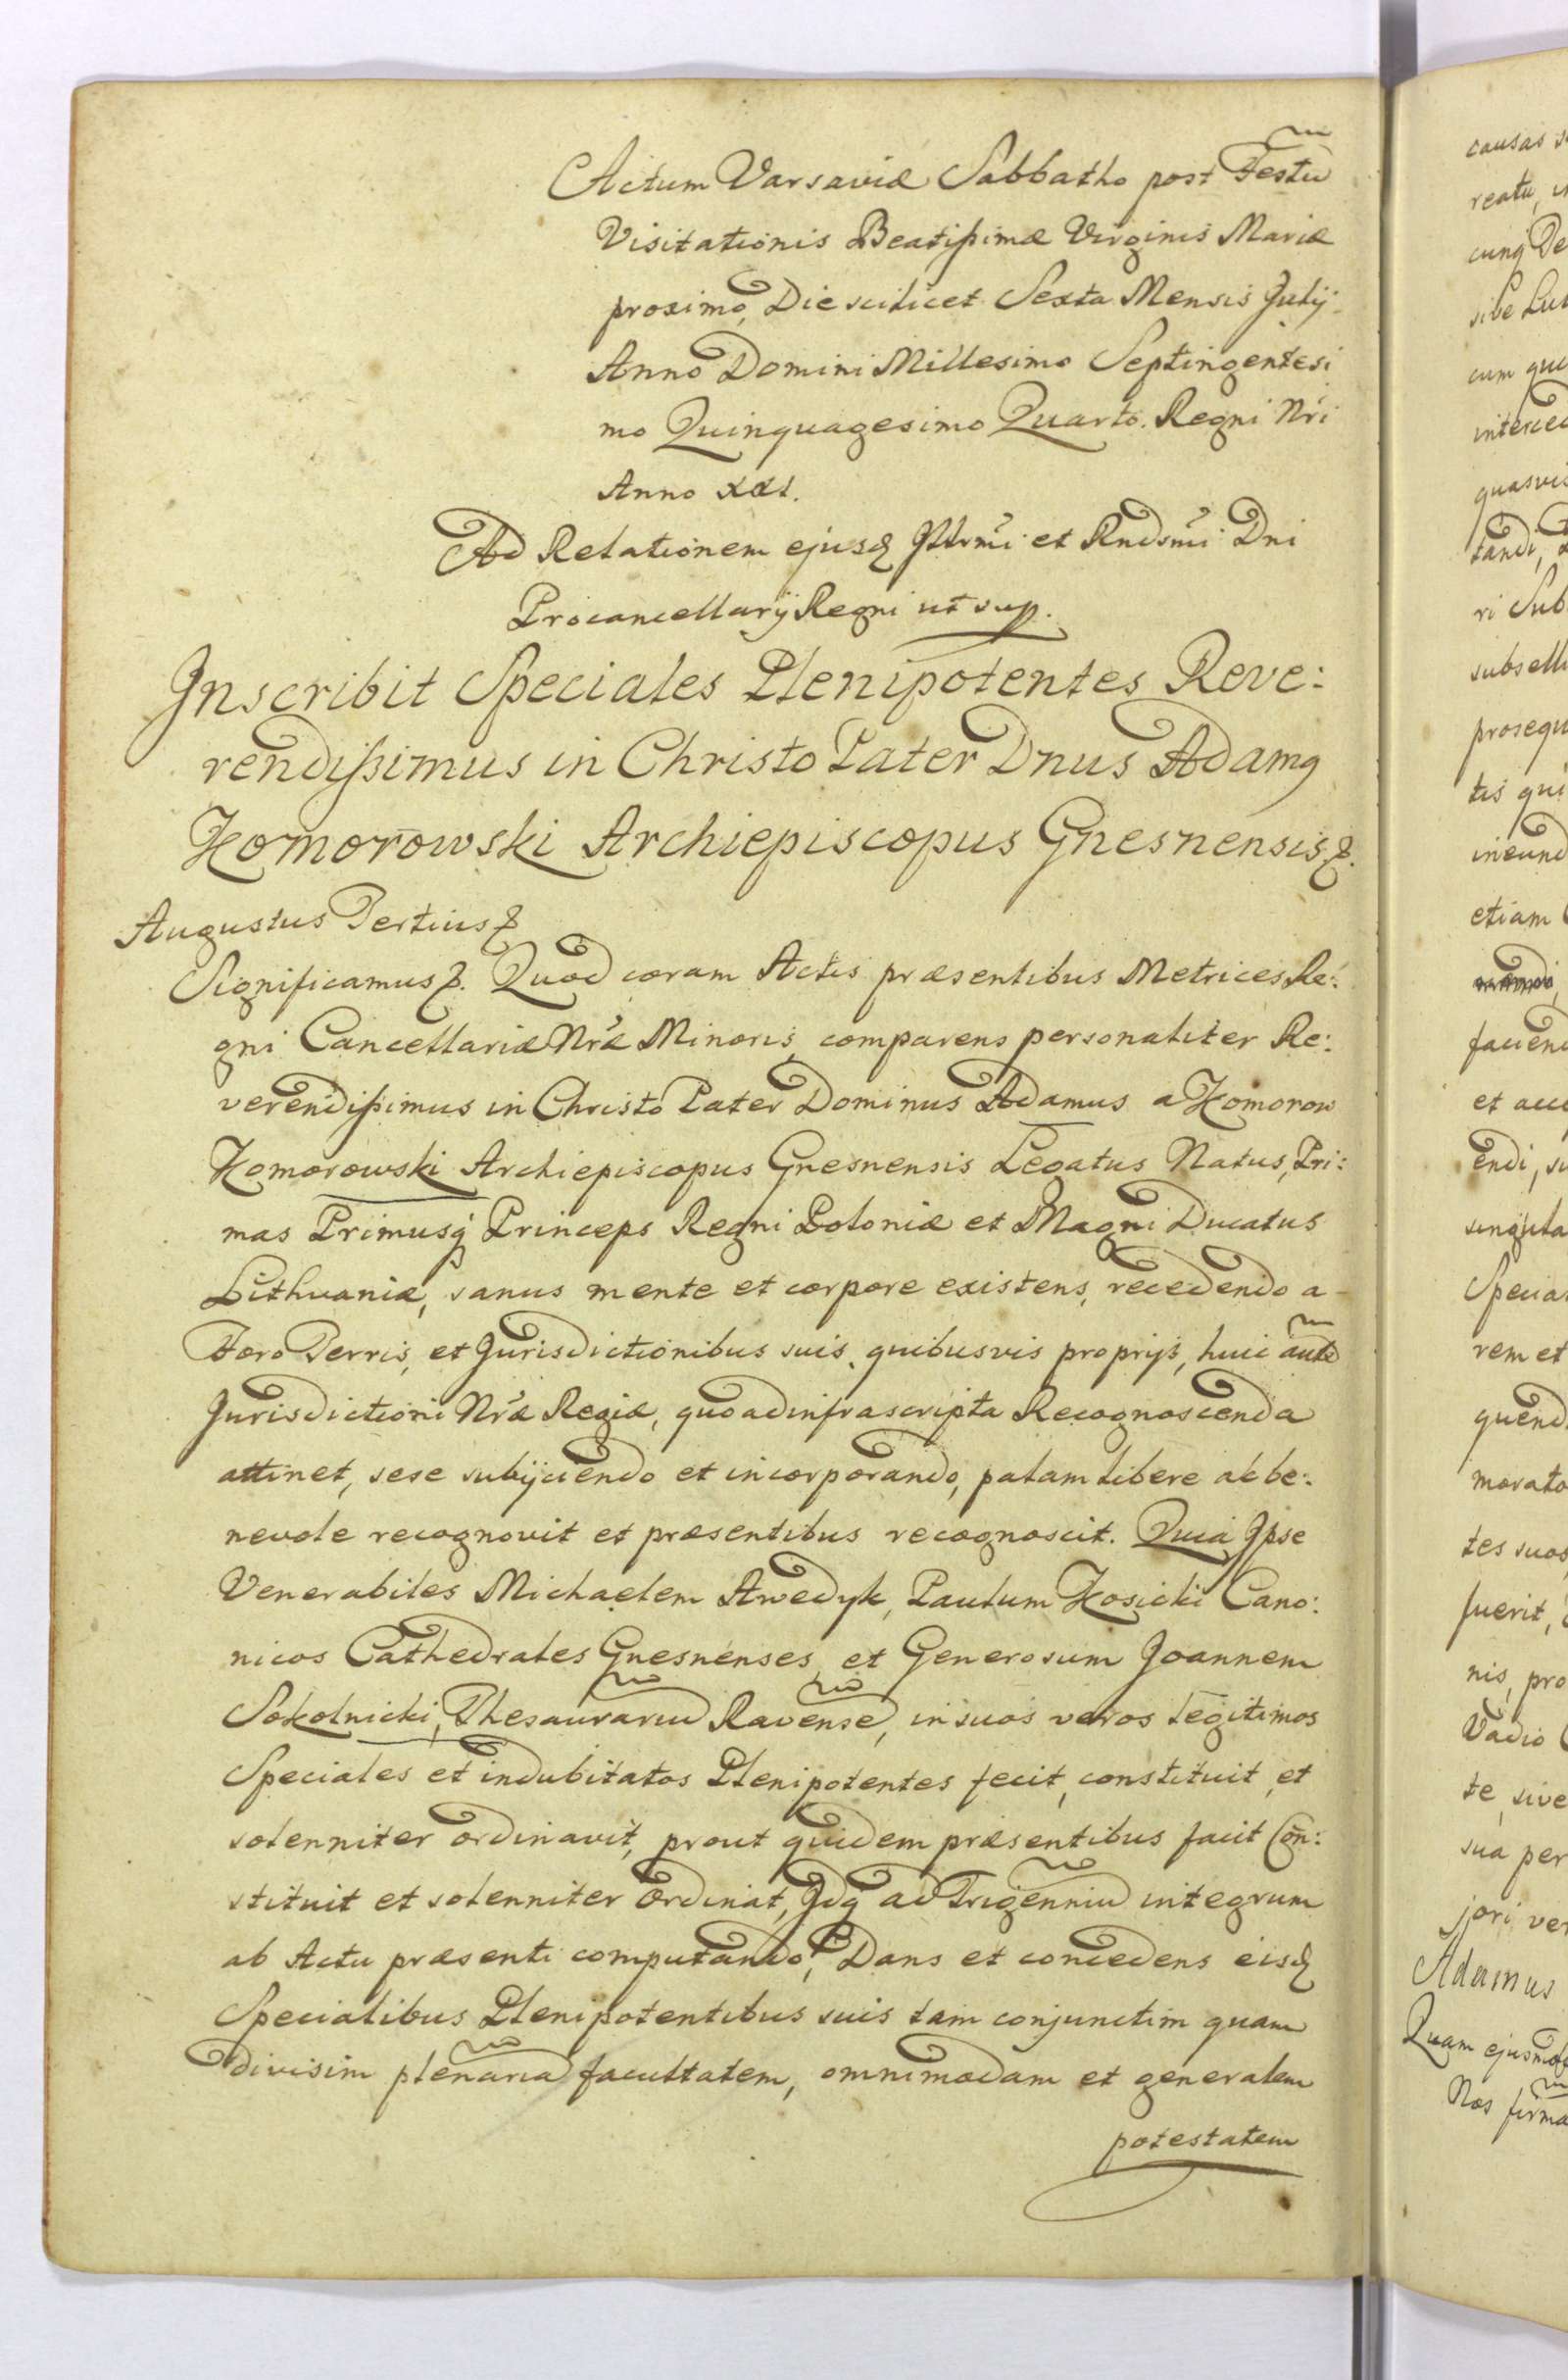 Actum Varsaviæ Sabbatho post Festũ
Visitationis Beatißimæ Virginis Mariæ
proximo, Die scilicet Sexta Mensis Julij
Anno Domini Millesimo Septingentesi
mo Quinquagesimo Quarto. Regni Nri
Anno XXI.
Ad Relationem ejusq Illrmi et Rndsmi Dni
Procancellarij Regni ut sup.
Inscribit Speciales Plenipotentes Reve:
rendißimus in Christo Pater Dnus Adam9
Komorowski Archiepiscopus Gnesnensis
Augustus Tertius
Significamus. Quod coram Actis præsentibus Metrices Re:
gni Cancellariæ Nræ Minoris, comparens personaliter Re:
verendißimus in Christo Pater Dominus Adamus a Komorow
Komorowski Archiepiscopus Gnesnensis Legatus Natus, Pri:
mas Primusq Princeps Regni Poloniæ et Magni Ducatus
Lithuaniæ, sanus mente et corpore existens, recedendo a
Foro Terris, et Jurisdictionibus suis, quibusvis proprijs, huic autẽ
Jurisdictioni Nræ Regiæ, quo ad infrascripta Recognoscenda
attinet, sese subijciendo et incorporando, palam libere ac be:
nevole recognovit et præsentibus recognoscit. Quia Ipse
Venerabiles Michaelem Awedyk, Paulum Kosicki Cano:
nicos Cathedrales Gnesnenses, et Generosum Joannem
Sokolnicki, Thesaurariũ Ravensẽ, in suos veros legitimos
Speciales et indubitatos Plenipotentes fecit, constituit, et
solenniter ordinavit, prout quidem præsentibus facit Con:
stituit et solenniter ordinat, Idq ad Trigenniũ integrum
ab Actu præsenti computando, Dans et concedens eisd
Specialibus Plenipotentibus suis tam conjunctim quam
divisim plenariã facultatem, omnimodam et generalem
potestatem
causas
reatu,
cunq De
sive
cum
quasvis
tandi,
ri Sub
subselli
prosequ
tis
etiam
et
endi,
singula
rem et
tes suos
fuerit,
nis, pro
Vadio
te, sive
sua per
jori
Adamus
Quam
Nos